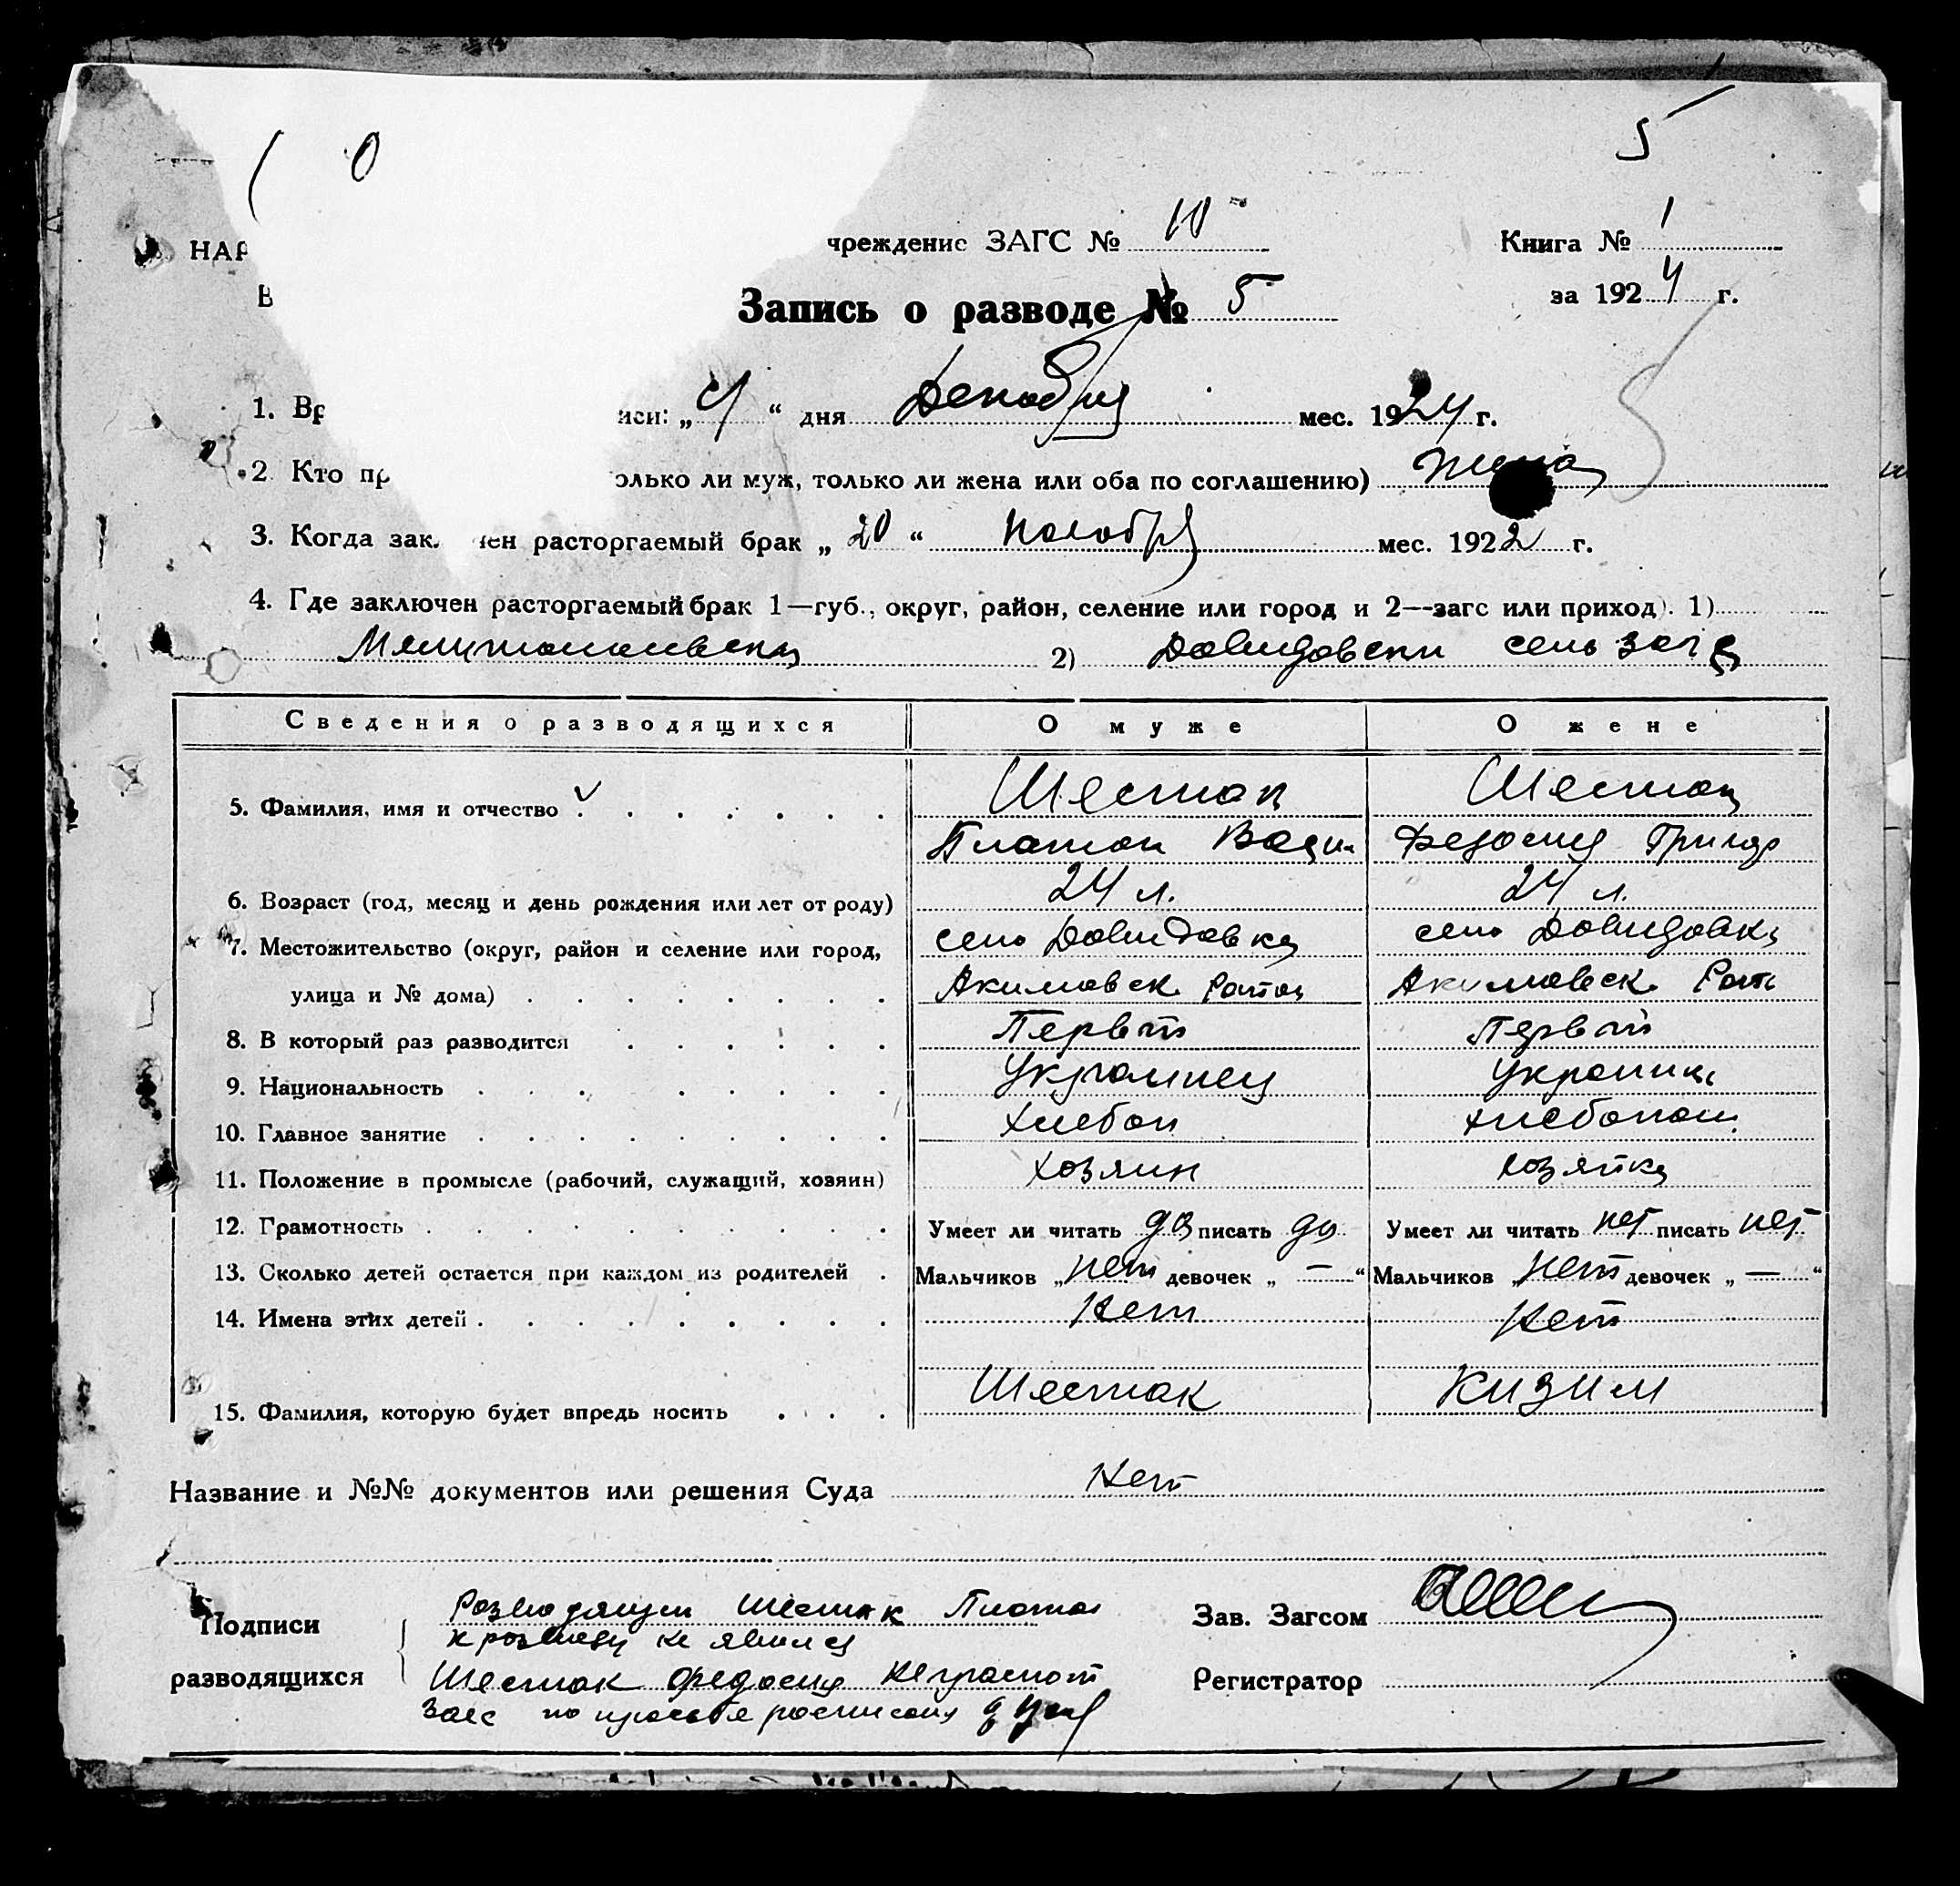 5
0
НАР чреждение ЗАГС № 10 Книга № 1
В за 1924 г.
Запись о разводе № 5
1. Вр иси: „ 4 “ дня Декабря мес. 1924 г.
2 Кто пр олько ли муж, только ли жена или оба по соглашению) жена
3. Когда зак. чен расторгаемый брак „ 20 “ Ноября мес. 1922 г.
4. Где заключен расторгаемый брак 1—губ., округ, район, селение или город и 2—загс или приход). 1)
2) Давидовски сель загс
Сведения о разводящихся О муже О жене
5. Фамилия, имя и отчество Шестак Шестак
Платон Васил Федосия Григор
6. Возраст (год, месяц и день рождения или лет от роду) 24 л. 24 л.
7. Местожительство (округ, район и селение или город, село Давидовка село Давидовка
улица и № дома) Акимовск. Район Акимовск. Рай
8. В который раз разводится Первый Первый
9. Национальность Украинец Украинк
10. Главное занятие Хлебоп хлебопаш.
11. Положение в промысле (рабочий, служащий, хозяин) хозяин хозяйка
12. Грамотность Умеет ли читать да писать да Умеет ли читать нет писать нет
13. Сколько детей остается при каждом из родителей Мальчиков „ нет девочек „ — “ Мальчиков „ нет девочек „ — “
14. Имена этих детей Нет Нет
15. Фамилия, которую будет впредь носить Шестак Кизим
Название и №№ документов или решения Суда нет
Подписи Разводящи Шестак Платон Зав. Загсом
к розводу не явился
разводящихся Шестак Федосия неграмот Регистратор
за ее по просьбе росписался